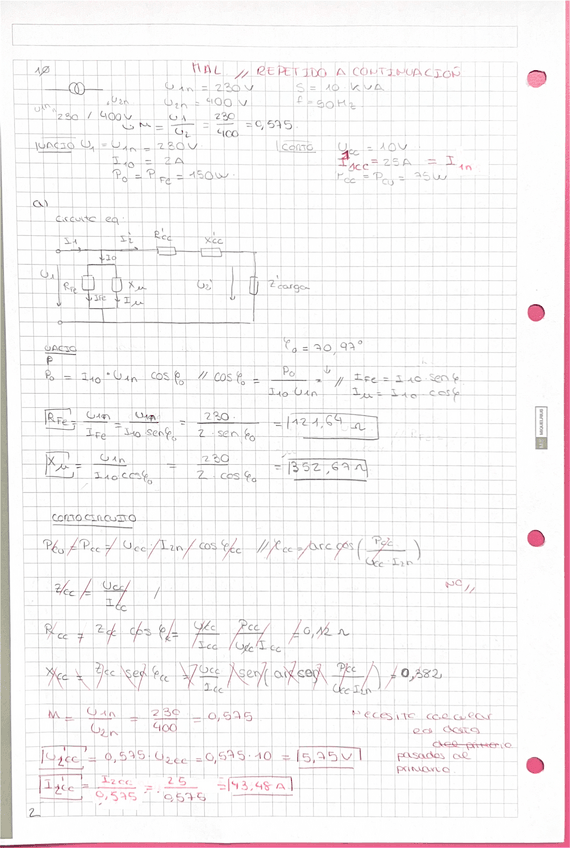 1º
MAL // REPETIDO A CONTINUACIÓN
U1n = 230V S = 10 KVA
U2n = 400V f = 50Hz
U1n U2n
230 / 400V
M = U1/U2 = 230/400 = 0,575.
VACIO U1 = U1n = 230V
I10 = 2A
P0 = PFe = 150W.
CORTO Ucc = 10V
I1cc = 25A = I1n
Pcc = Pcu = 75W
a)
Circuito eq.
I1 I2' R'cc X'cc
I0
U1 RFe Xμ U2' Z'carga
IFe Iμ
φ0 = 70,97°
VACIO
P0 = I10 · U1n cos φ0 // cos φ0 = P0/(I10 U1n) = // IFe = I10 sen φ
Iμ = I10 cos φ
RFe = U1n/IFe = U1n/(I10 sen φ0) = 230/(2 · sen φ0) = 121,64 Ω
Xμ = U1n/(I10 cos φ0) = 230/(2 · cos φ0) = 352,67 Ω
CORTOCIRCUITO
Pcu = Pcc = Ucc · I2n · cos φcc // φcc = arc cos (Pcc/(Ucc · I2n))
Zcc = Ucc/Icc
NO //
Rcc = Zcc cos φ = Ucc/Icc Pcc/(Ucc Icc) = 0,12 Ω
Xcc = Zcc sen φcc = Ucc/Icc sen (arc cos Pcc/(Ucc I2n)) = 0,382
M = U1n/U2n = 230/400 = 0,575
Necesito calcular
los datos
pasados al
primario
U2'cc = 0,575 · U2cc = 0,575 · 10 = 5,75V
I2'cc = I2cc/0,575 = 25/0,575 = 43,48 A
2
MIQUELRIUS